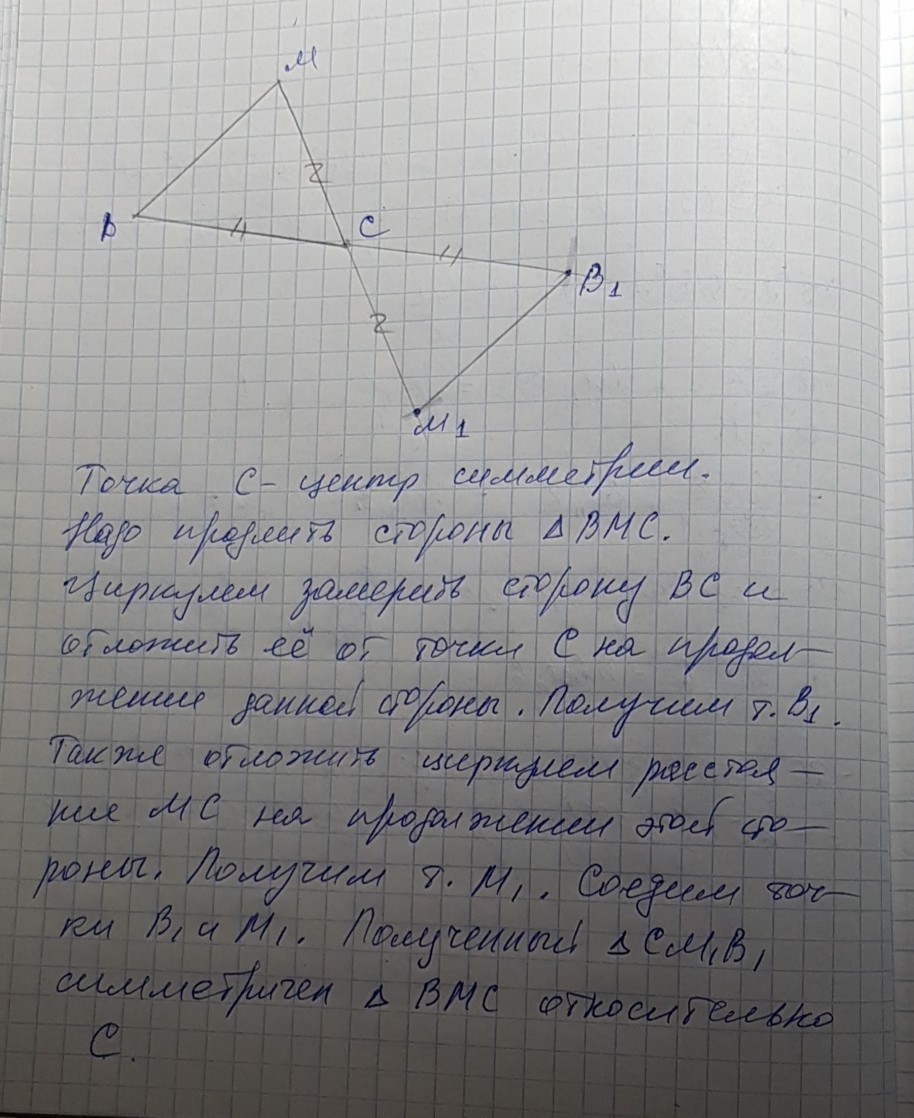 М
В
С
В₁
М₁
Точка С - центр симметрии.
Надо продлить стороны Δ ВМС.
Циркулем замерить сторону ВС и
отложить её от точки С на продол-
жение данной стороны. Получим т. В₁.
Также отложить циркулем расстоя-
ние МС на продолжении этой сто-
роны. Получим т. М₁. Соедим точ-
ки В₁ и М₁. Полученный Δ СМ₁В₁
симметричен Δ ВМС относительно
С.